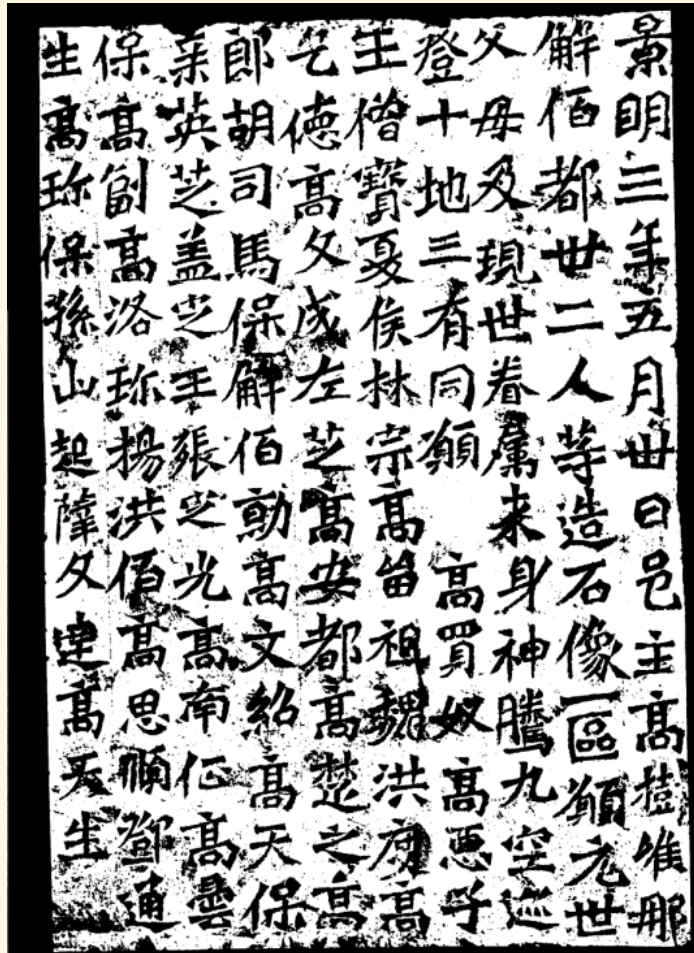 景明三年五月卅日邑主高樹唯那
解佰都卅二人等造石像一區願元世
父母及現世眷屬来身神騰九空迹
登十地三有同願 高買奴高悪子
王僧寶夏侯林宗高留祖魏洪度高
乞德高文成左芝高安都高楚之高
郎胡司馬保解佰勍高文紹高天保
英芝盖定王張定光高南征高曇
保高副高洛珎楊洪佰高思順鄧通
生高珎保孫山起薩文達高天生